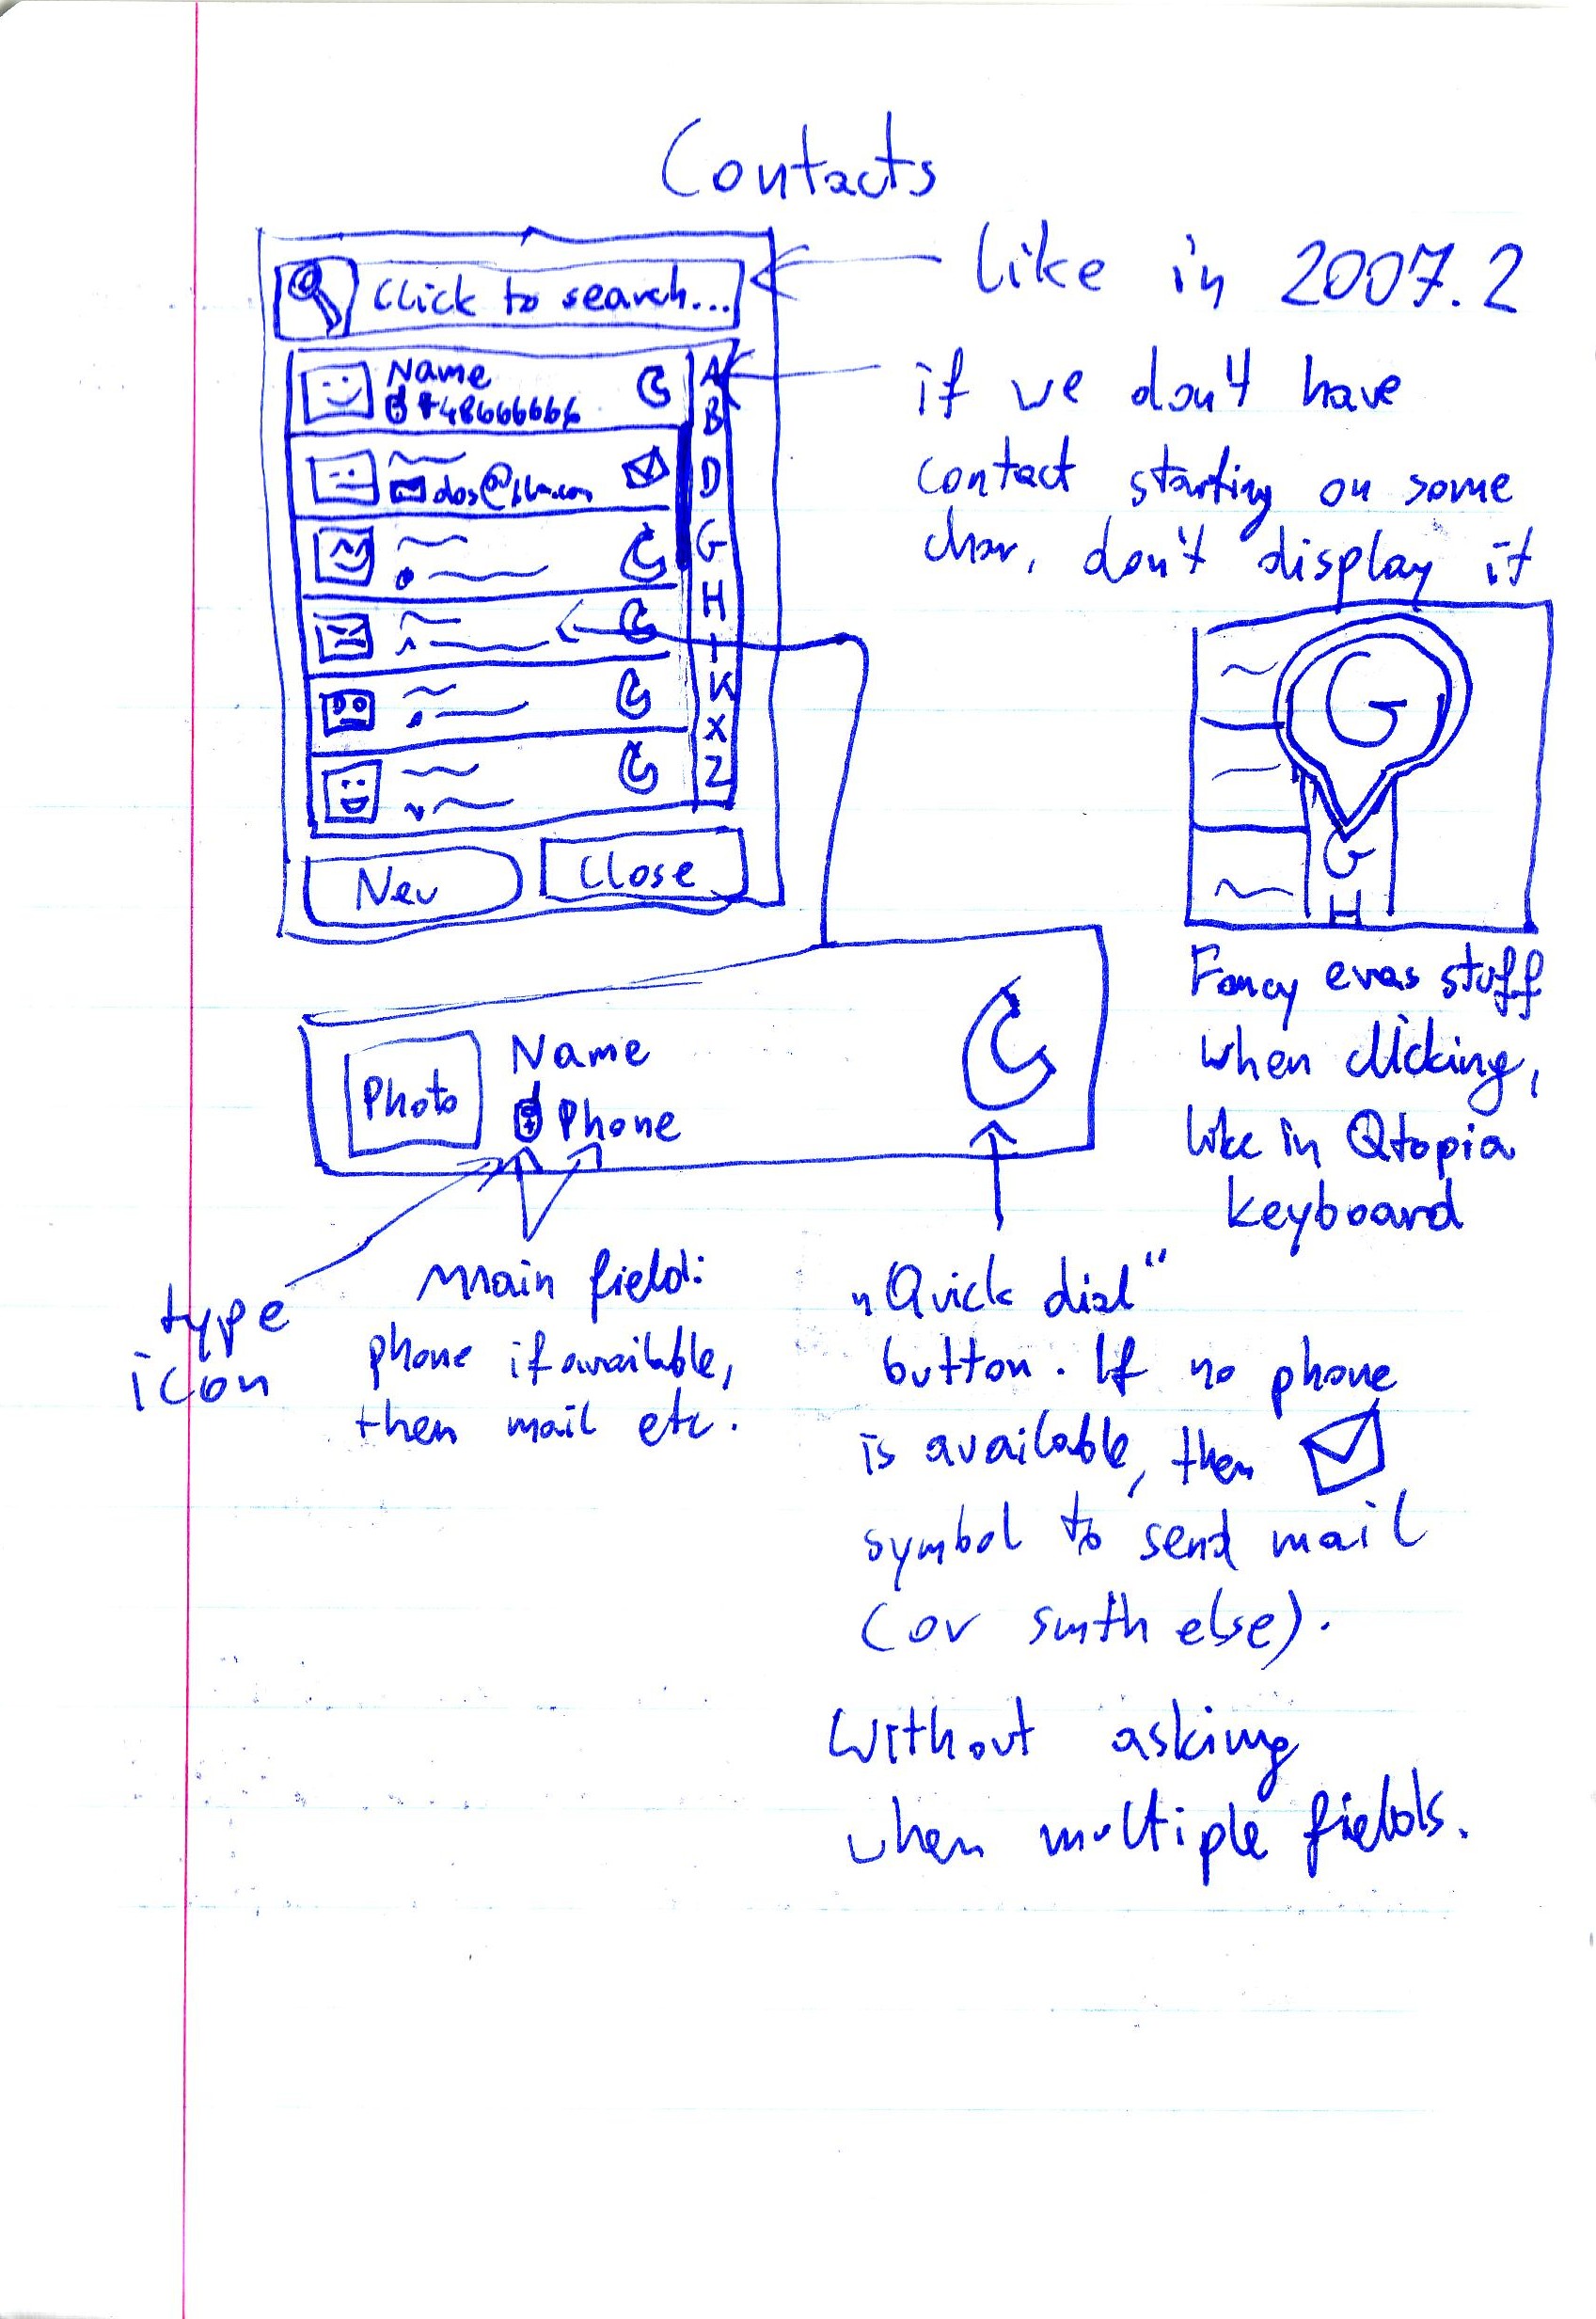 Contacts
Click to search...
like in 2007.2
Name
+48666666
A
B
D
G
H
I
K
X
Z
if we don't have
contact starting on some
char, don't display it
New
Close
G
G
H
Fancy evas stuff
when clicking,
like in Qtopia
keyboard
Photo
Name
Phone
type
icon
Main field:
phone if available,
then mail etc.
„Quick dial“
button. If no phone
is available, then
symbol to send mail
(or smth else).
Without asking
when multiple fields.